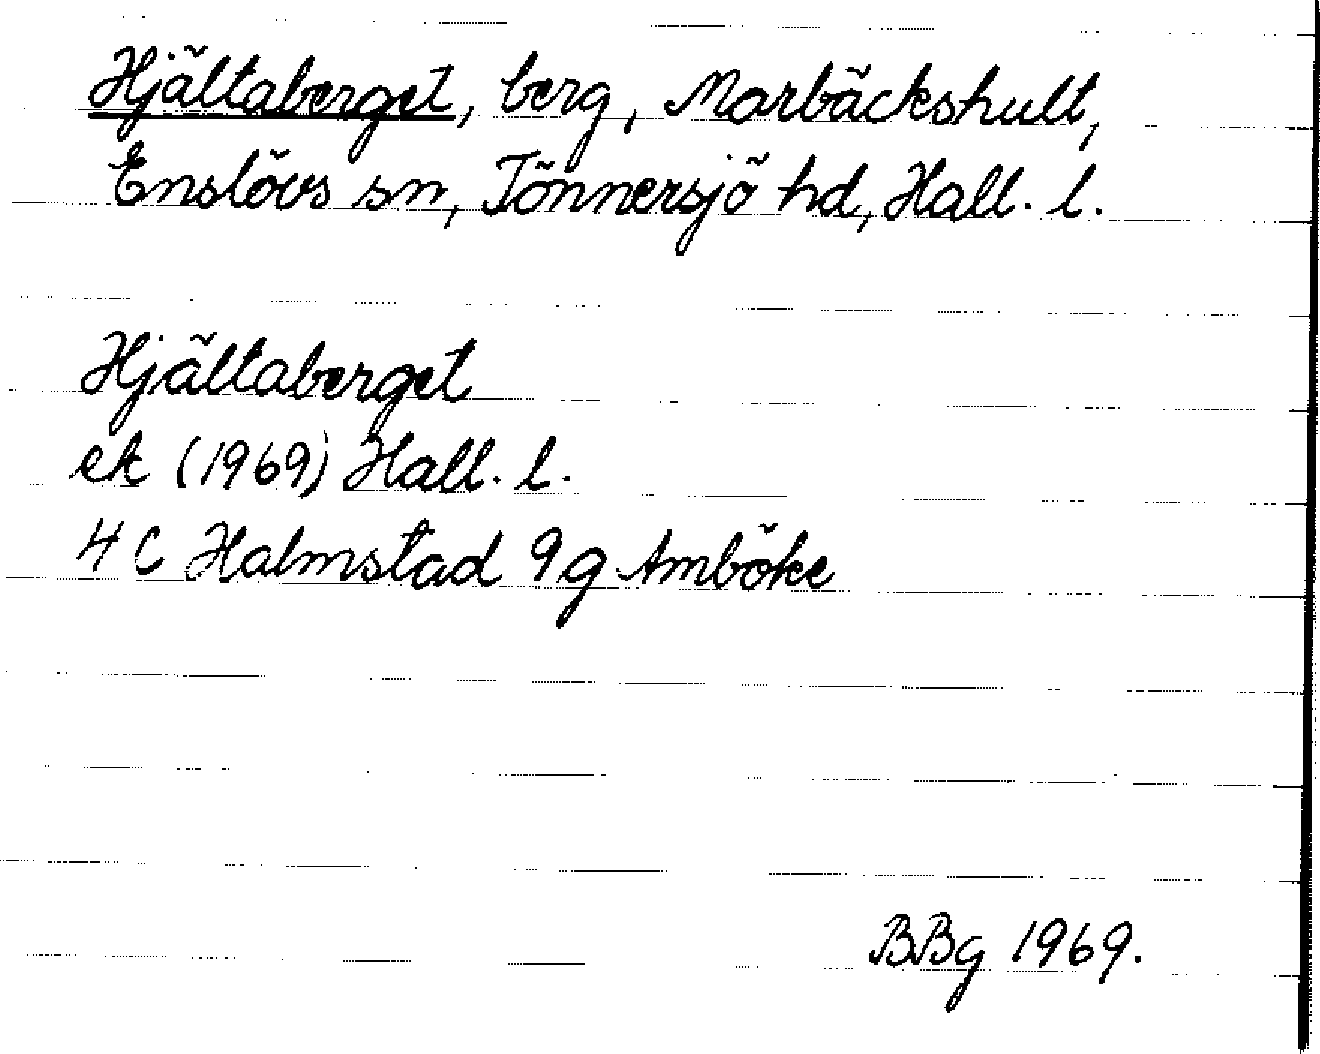 Hjältaberget, berg, Marbäckshult,
Enslövs sn, Tönnersjö hd, Hall. l.
Hjältaberget
ek (1969) Hall. l.
4 C Halmstad 9g Amböke
BBg 1969.